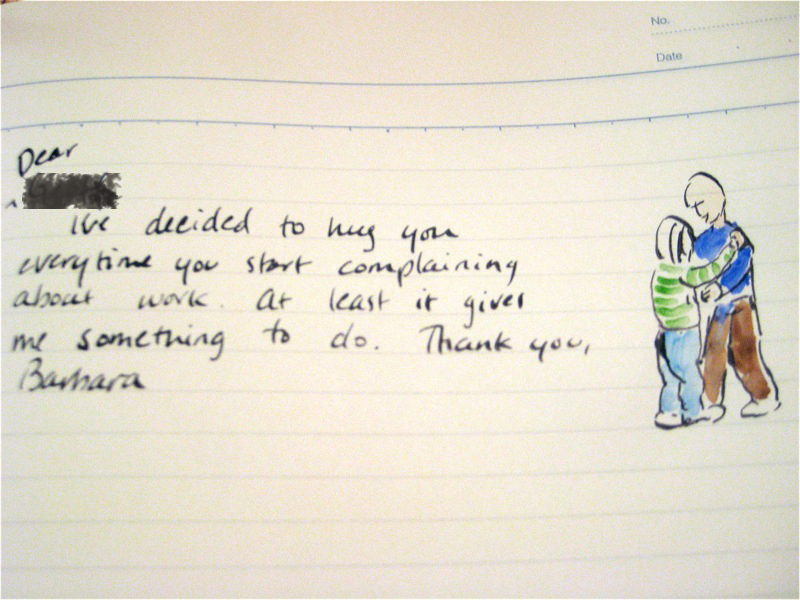 No.
Date
Dear
I've decided to hug you
everytime you start complaining
about work. At least it gives
me something to do. Thank you,
Barbara